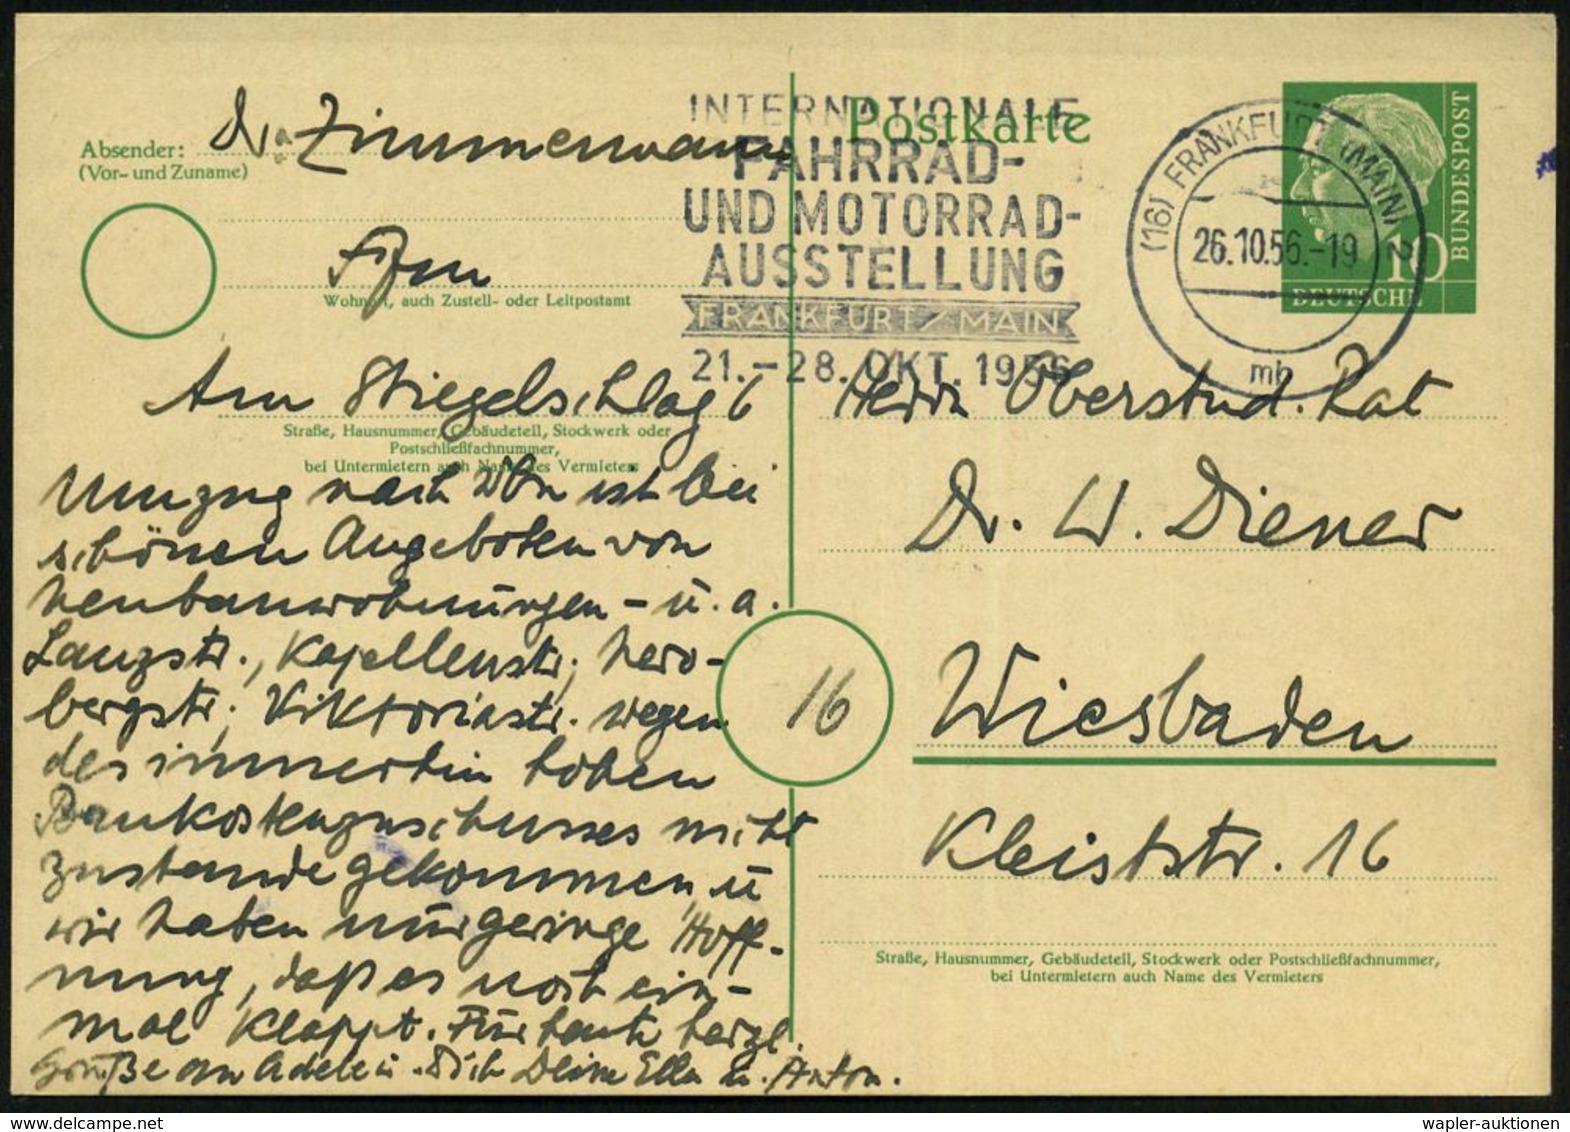 Absender:
(Vor- und Zuname)
Dr. Zimmermann
Ffm
Wohnort, auch Zustell- oder Leitpostamt
Am Stiegelschlag 6
Straße, Hausnummer, Gebäudeteil, Stockwerk oder
Postschließfachnummer,
bei Untermietern auch Name des Vermieters
Umzug nach Wbn ist bei
schönen Angeboten von
Neubauwohnungen - u. a.
Lanzstr., Kapellenstr., Nero-
bergstr., Viktoriastr. wegen
des immerhin hohen
Baukostenzuschusses nicht
zustande gekommen u
wir haben nur geringe Hoff-
nung, daß es noch ein-
mal klappt. Für heute herzl.
Grüße an Adele u. Dich Deine Ella u. Anton.
Postkarte
INTERNATIONALE
FAHRRAD-
UND MOTORRAD-
AUSSTELLUNG
FRANKFURT/MAIN
21.-28. OKT. 1956
(16) FRANKFURT (MAIN) 2
26.10.56.-19
mb
10
DEUTSCHE
BUNDESPOST
Herrn Oberstud. Rat
Dr. W. Diener
16
Wiesbaden
Kleiststr. 16
Straße, Hausnummer, Gebäudeteil, Stockwerk oder Postschließfachnummer,
bei Untermietern auch Name des Vermieters
wapler-auktionen